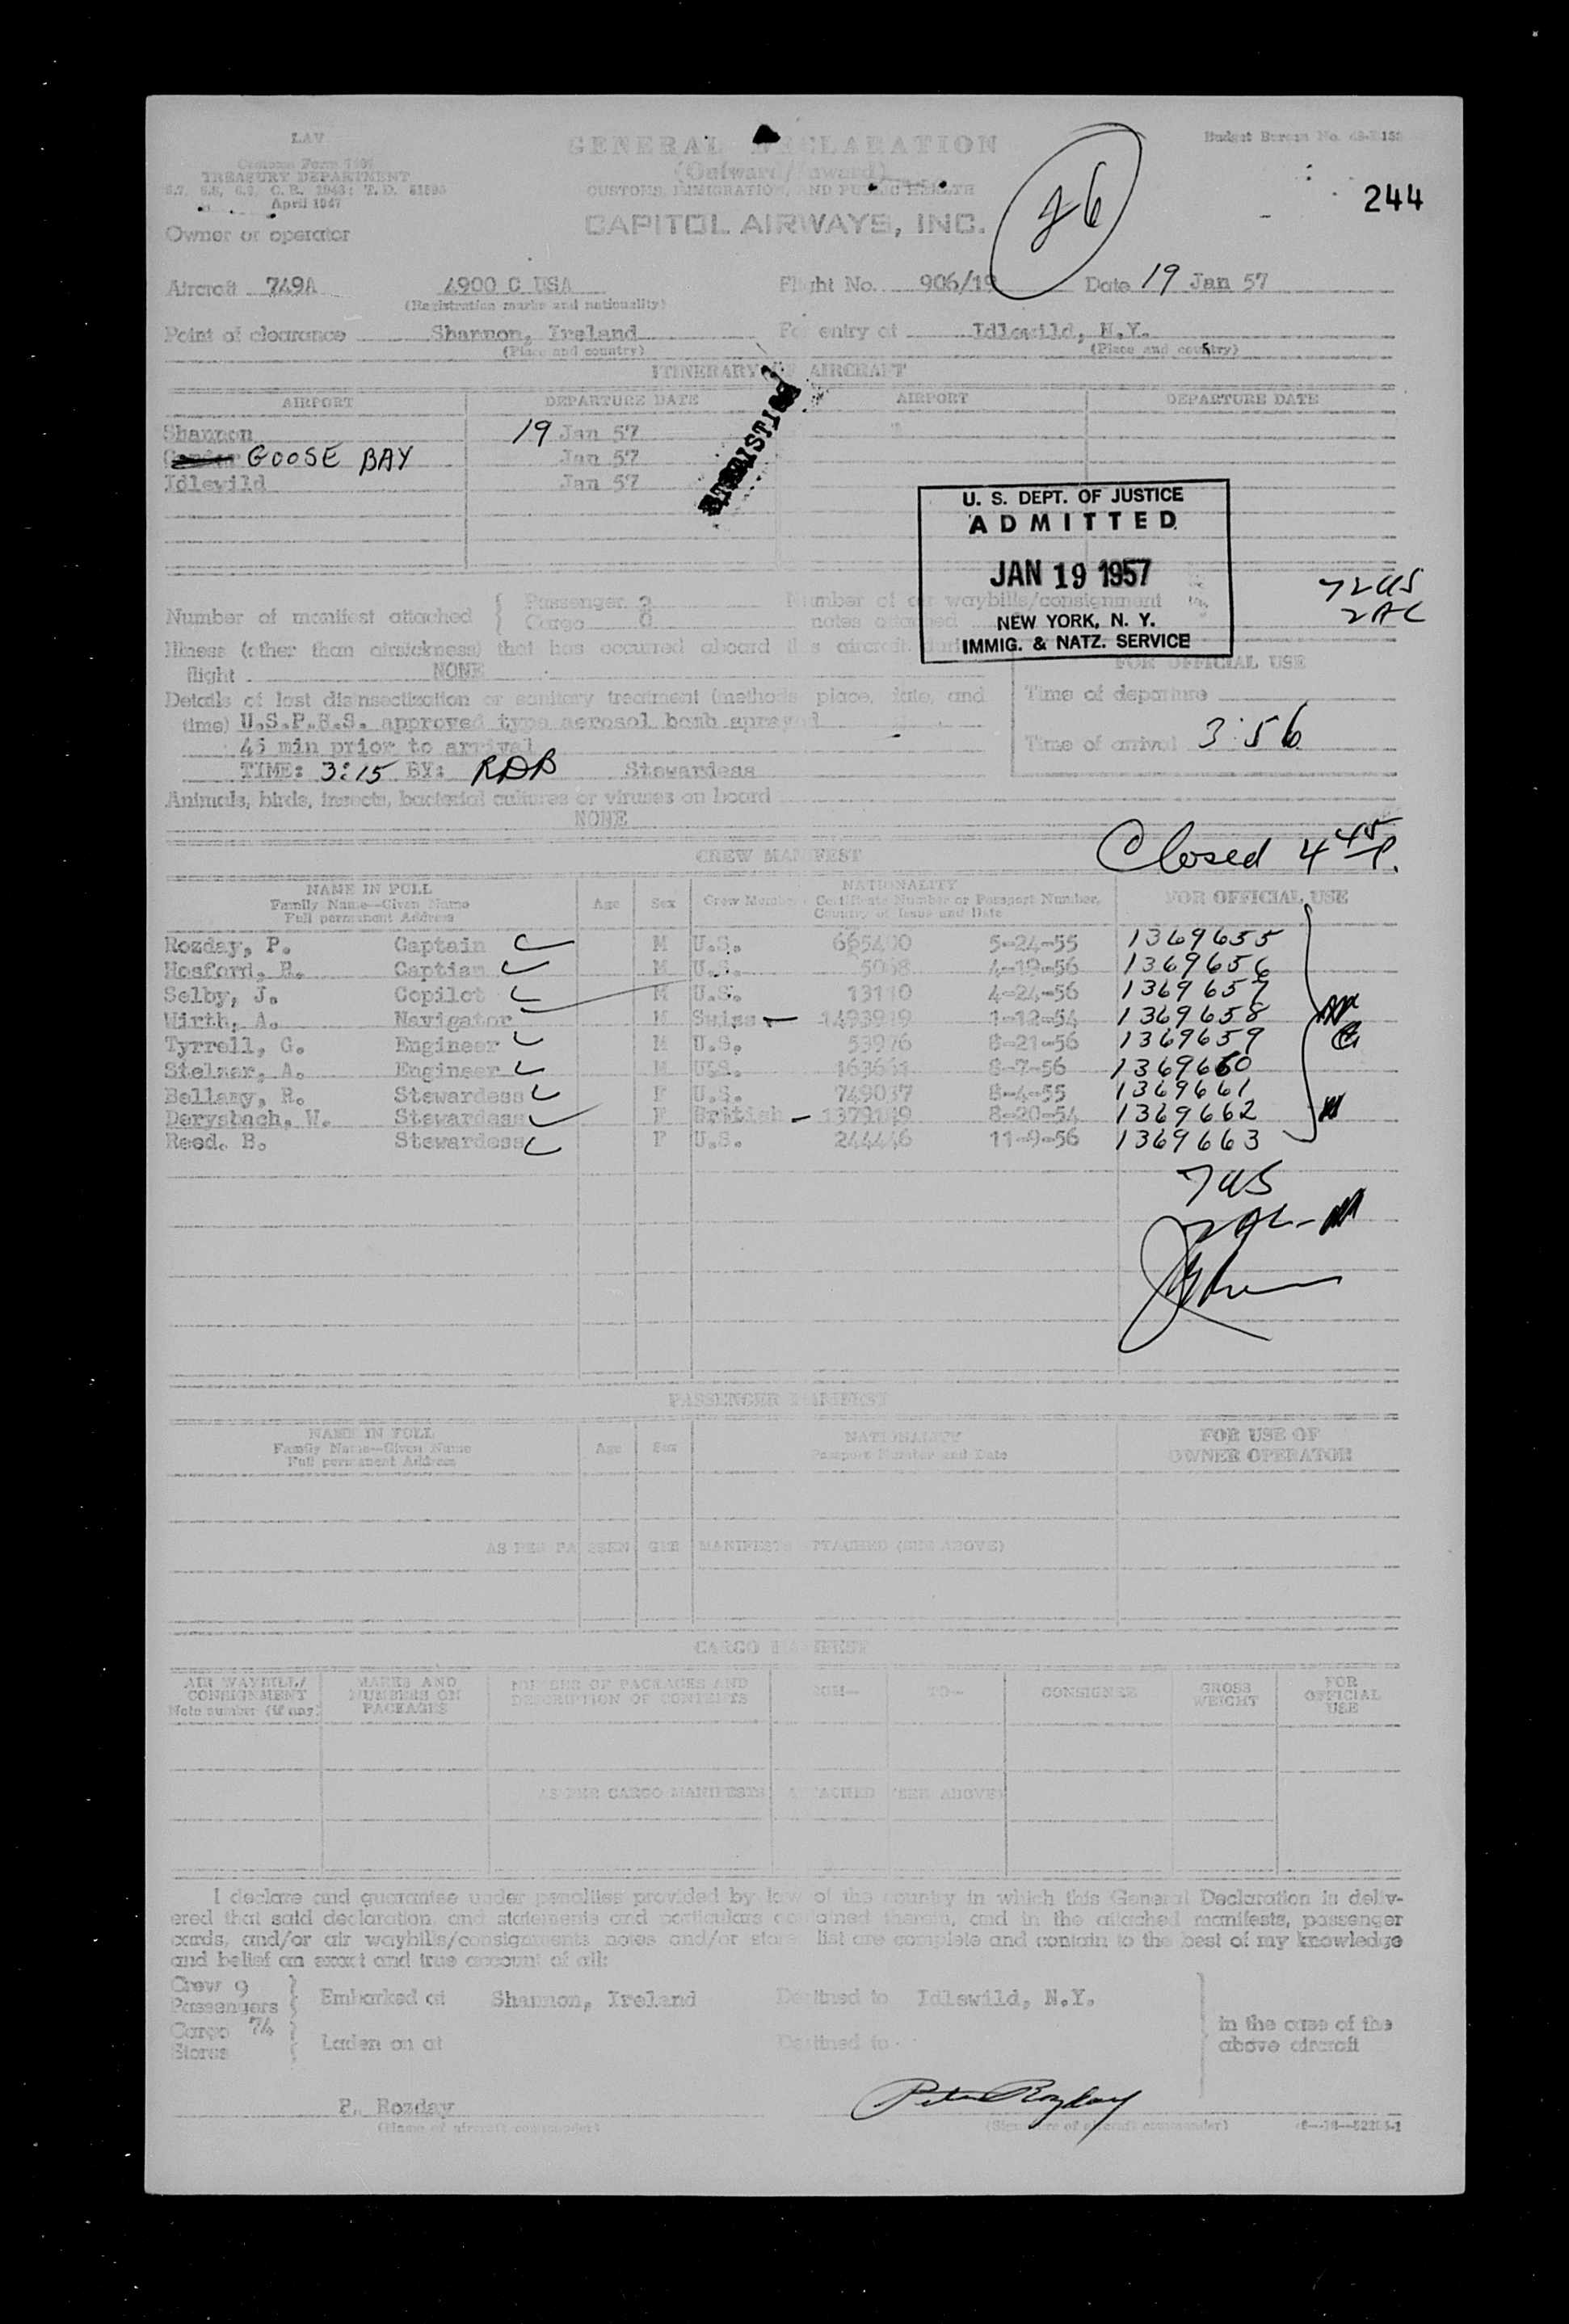 LAV
Customs Form 7507
TREASURY DEPARTMENT
April 1947
GENERAL DECLARATION
(Outward/Inward)
CUSTOMS, IMMIGRATION, AND PUBLIC HEALTH
CAPITOL AIRWAYS, INC.
Budget Bureau No.
26
244
Owner or operator
Aircraft 749A 4900 C USA Flight No. 906/19 Date 19 Jan 57
(Registration marks and nationality)
Point of clearance Shannon, Ireland For entry at Idlewild, N.Y.
(Place and country) (Place and country)
ITINERARY OF AIRCRAFT
AIRPORT DEPARTURE DATE AIRPORT DEPARTURE DATE
Shannon 19 Jan 57
GOOSE BAY Jan 57
Idlewild Jan 57
U. S. DEPT. OF JUSTICE
ADMITTED
JAN 19 1957
NEW YORK, N. Y.
IMMIG. & NATZ. SERVICE
72 US
2 AL
Number of manifest attached { Passenger Number of air waybills/consignment
Cargo 0 notes attached
Illness (other than airsickness) that has occurred aboard this aircraft during
flight NONE
FOR OFFICIAL USE
Details of last disinsectization or sanitary treatment (methods place, date, and
time) U.S.P.H.S. approved type aerosol bomb sprayed
45 min prior to arrival
TIME: 3:15 BY: RDB Stewardess
Time of departure
Time of arrival 3:56
Animals, birds, insects, bacterial cultures or viruses on board
NONE
Closed 4 45 P.
CREW MANIFEST
NAME IN FULL
Family Name—Given Name
Full permanent Address
Age Sex
NATIONALITY
Crew Member Certificate Number or Passport Number,
Country of Issue and Date
FOR OFFICIAL USE
Rozday, P. Captain M U.S. 665400 5-24-55 1369655
Hosford, R. Captian M U.S. 5068 4-19-56 1369656
Selby, J. Copilot M U.S. 13110 4-24-56 1369657
Wirth, A. Navigator M Swiss - 1493919 1-12-54 1369658
Tyrrell, G. Engineer M U.S. 53976 8-21-56 1369659
Stelzer, A. Engineer M U.S. 8-7-56 1369660
Bellamy, R. Stewardess F U.S. 749037 8-4-55 1369661
Derysbach, W. Stewardess F British - 8-20-54 1369662
Reed. B. Stewardess F U.S. 244446 11-9-56 1369663
7 US
2 AL
PASSENGER MANIFEST
NAME IN FULL
Family Name—Given Name
Full permanent Address
Age Sex
NATIONALITY
Passport Number and Date
FOR USE OF
OWNER OPERATOR
AS PER PASSENGER MANIFESTS ATTACHED (SEE ABOVE)
CARGO MANIFEST
AIR WAYBILL/
CONSIGNMENT
Note number (if any)
MARKS AND
NUMBERS ON
PACKAGES
NUMBER OF PACKAGES AND
DESCRIPTION OF CONTENTS
FROM— TO— CONSIGNEE
GROSS
WEIGHT
FOR
OFFICIAL
USE
AS PER CARGO MANIFESTS ATTACHED (SEE ABOVE)
I declare and guarantee under penalties provided by law of the country in which this General Declaration is deliv-
ered that said declaration, and statements and particulars contained therein, and in the attached manifests, passenger
cards, and/or air waybills/consignments notes and/or stores list are complete and contain to the best of my knowledge
and belief an exact and true account of all:
Crew 9
Passengers Embarked at Shannon, Ireland Destined to Idlewild, N.Y.
Cargo 74
Stores Laden on at Destined to
in the case of the
above aircraft
P. Rozday Peter Rozday
(Name of aircraft commander) (Signature of aircraft commander)